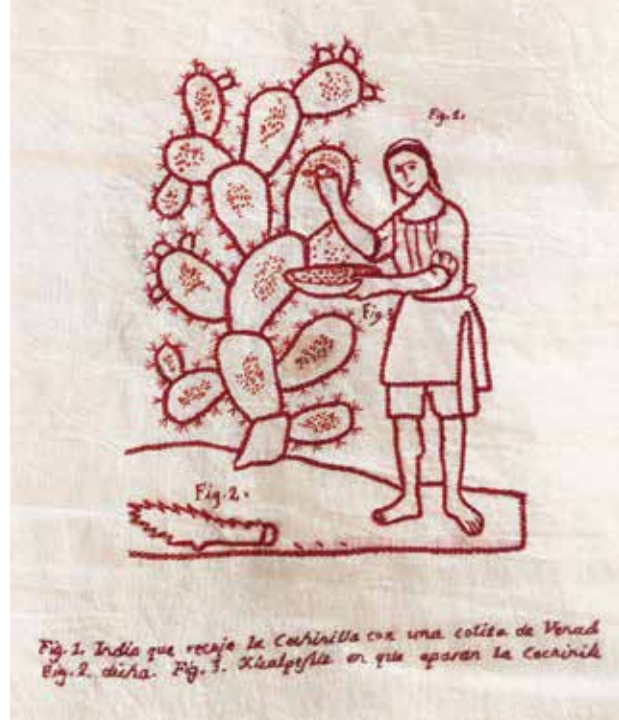 Fig. 1.
Fig. 3
Fig. 2.
Fig. 1. Indio que recoje la Cochinilla con una colita de Venad
Fig. 2. dicha. Fig. 3. Xicalpestle en que aparan la Cochinill